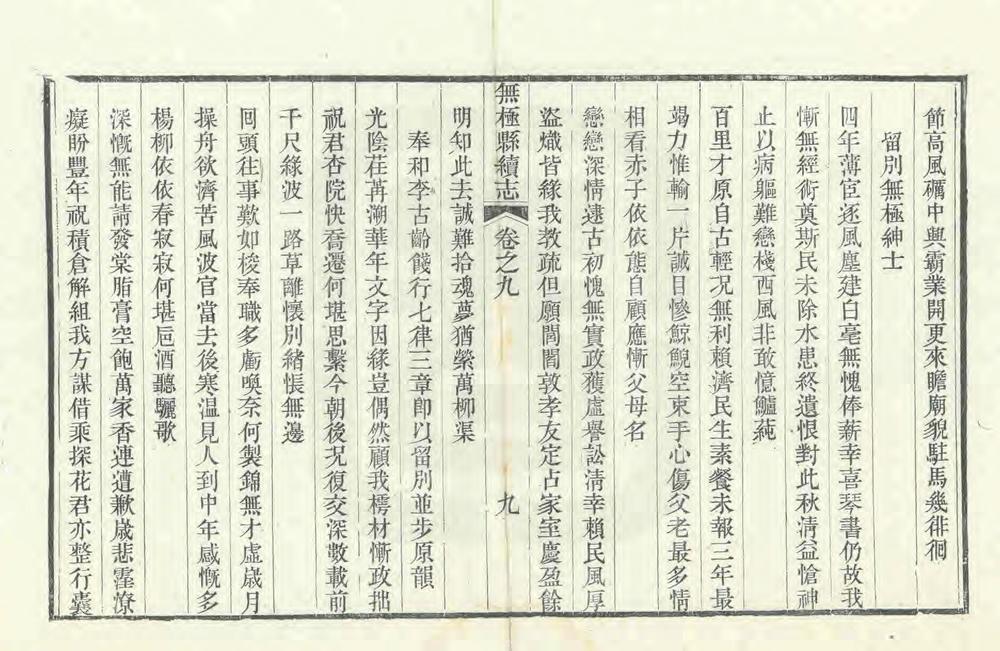 節高風礪中興霸業開更來瞻廟貌駐馬幾徘徊
留別無極紳士
四年薄宦逐風塵建白毫無愧俸薪幸喜琴書仍故我
慚無經術奠斯民未除水患終遺恨對此秋清益愴神
止以病軀難戀棧西風非敢憶鱸蒓
百里才原自古輕况無利賴濟民生素餐未報三年最
竭力惟輸一片誠目慘鯨鯢空束手心傷父老最多情
相看赤子依依態自顧應慚父母名
戀戀深情逮古初愧無實政獲虛譽訟清幸賴民風厚
盜熾皆緣我教疏但願閭閻敦孝友定占家室慶盈餘
明知此去誠難拾魂夢猶縈萬柳渠
無極縣續志
卷之九
九
奉和李古齡餞行七律三章即以留別並步原韻
光陰荏苒溯華年文字因緣豈偶然顧我樗材慚政拙
祝君杏院快喬遷何堪思繫今朝後况復交深數載前
千尺綠波一路草離懷別緒悵無邊
回頭往事歎如梭奉職多虧喚奈何製錦無才虛歲月
操舟欲濟苦風波官當去後寒温見人到中年感慨多
楊柳依依春寂寂何堪巵酒聽驪歌
深慨無能請發棠脂膏空飽萬家香連遭歉歲悲霪潦
癡盼豐年祝積倉解組我方謀借乘探花君亦整行囊